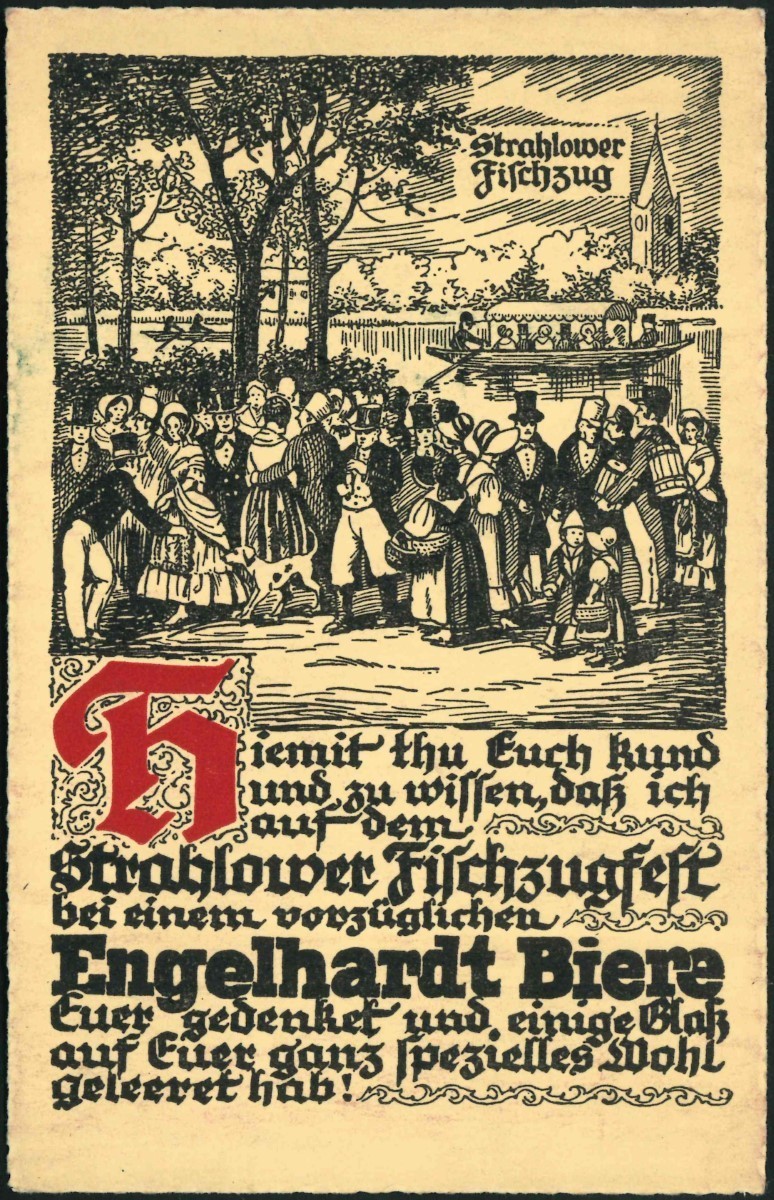 Strahlower
Fischzug
Hiemit thu Euch kund
und zu wissen, daß ich
auf dem
Strahlower Fischzugfest
bei einem vorzüglichen
Engelhardt Biere
Euer gedenket und einige Glaß
auf Euer ganz spezielles Wohl
geleeret hab!